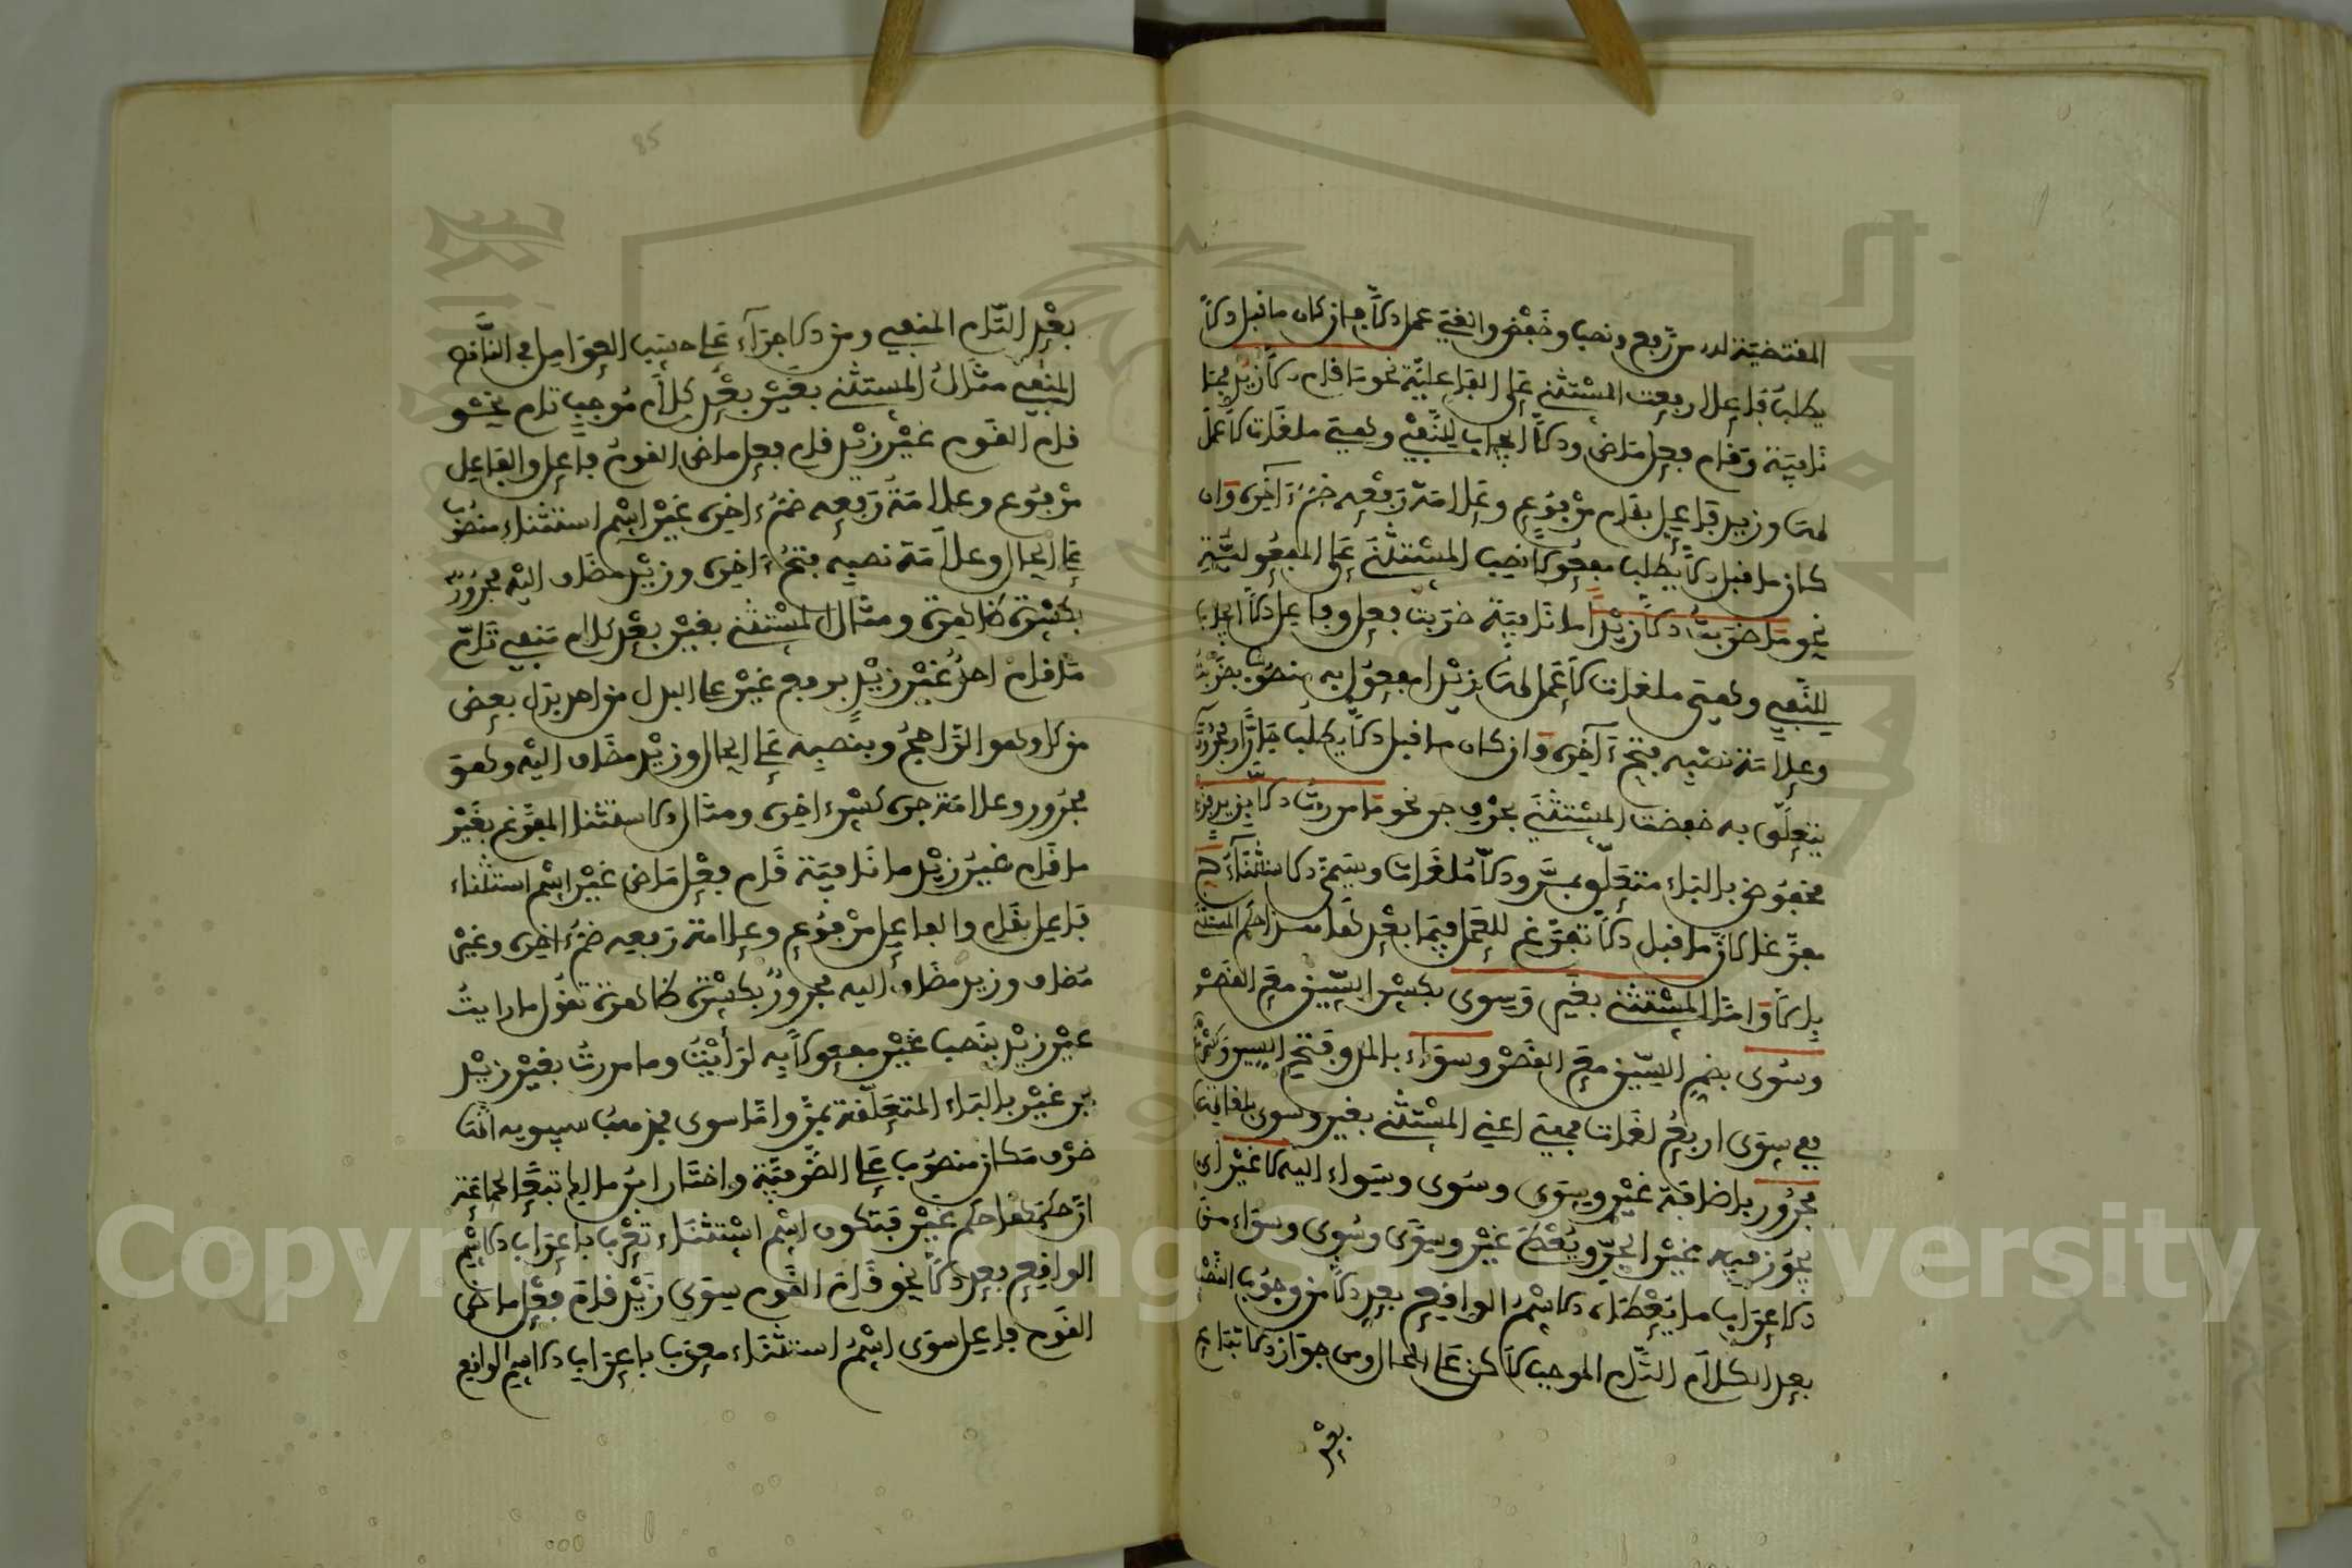 المقتضية له من رفع ونصب وخفض والغي عمل إلا فإن كان ما قبل إلا
يطلب فاعلا رفعت المستثنى على الفاعلية نحو ما قام إلا زيد فما
نافية وقام فعل ماض وإلا إيجاب للنفي وهي ملغات لا عمل
لها وزيد فاعل بقام مرفوع وعلامة رفعه ضم آخره وإن
كان ما قبل إلا يطلب مفعولا نصب المستثنى على المفعولية
نحو ما ضربت إلا زيدا ما نافية ضربت فعل وفاعل إلا إيجاب
للنفي وهي ملغات لا عمل لها زيدا مفعول به منصوب بضربت
وعلامة نصبه فتح آخره وإن كان ما قبل إلا يطلب جارا ومجرورا
يتعلق به خفضت المستثنى بحرف جر نحو ما مررت إلا بزيد فزيد
مخفوض بالباء متعلق بمر وإلا ملغات ويسمى الاستثناء ح
مفرغا لان ما قبل إلا تفرغ للعمل فيما بعدها هذا حكم المستثنى
بإلا واما المستثنى بغير وسوى بكسر السين مع القصر
وسوى بضم السين مع القصر وسواء بالمد وفتح السين وكسرها
ففي سوى اربع لغات فهي اعني المستثنى بغير وسوى بلغاتها
مجرور بإضافة غير وسوى وسوى وسواء اليه لا غير اي
يجوز فيه غير الجر ويعطى غير وسوى وسوى وسواء من
الاعراب ما يعطاه الاسم الواقع بعد إلا من وجوب النصب
بعد الكلام التام الموجب لاكن على الحال ومن جواز الاتباع
بعد
بعد التام المنفي ومن الاجراء على حسب العوامل في الناقص
المنفي مثال المستثنى بغير بعد كلام موجب تام نحو
قام القوم غير زيد قام فعل ماض القوم فاعل والفاعل
مرفوع وعلامة رفعه ضم ءاخره غير اسم استثناء منصوب
على الحال وعلامة نصبه فتح ءاخره وزيد مضاف اليه مجرور
بكسرة ظاهرة ومثال المستثنى بغير بعد كلام منفي تام
ما قام احد غير زيد برفع غير على البدل من احد بدل بعض
من كل وهو الراجح وبنصبه على الحال وزيد مضاف اليه وهو
مجرور وعلامة جره كسر ءاخره ومثال الاستثنا المفرغ بغير
ما قام غير زيد ما نافية قام فعل ماض غير اسم استثناء
فاعل بقام والفاعل مرفوع وعلامة رفعه ضم ءاخره وغير
مضاف وزيد مضاف اليه مجرور بكسرة ظاهرة تقول ما رايت
غير زيد بنصب غير مفعولا به لرأيت وما مررت بغير زيد
بجر غير بالباء المتعلقة بمر واما سوى فمذهب سيبويه انها
ظرف مكان منصوب على الظرفية واختار ابن مالك تبعا لجماعة
ان حكمها حكم غير فتكون اسم استثناء تعرب بإعراب الاسم
الواقع بعد إلا نحو قام القوم سوى زيد قام فعل ماض
القوم فاعل سوى اسم استثناء معرب بإعراب الاسم الواقع
85
Copyright © King Saud University